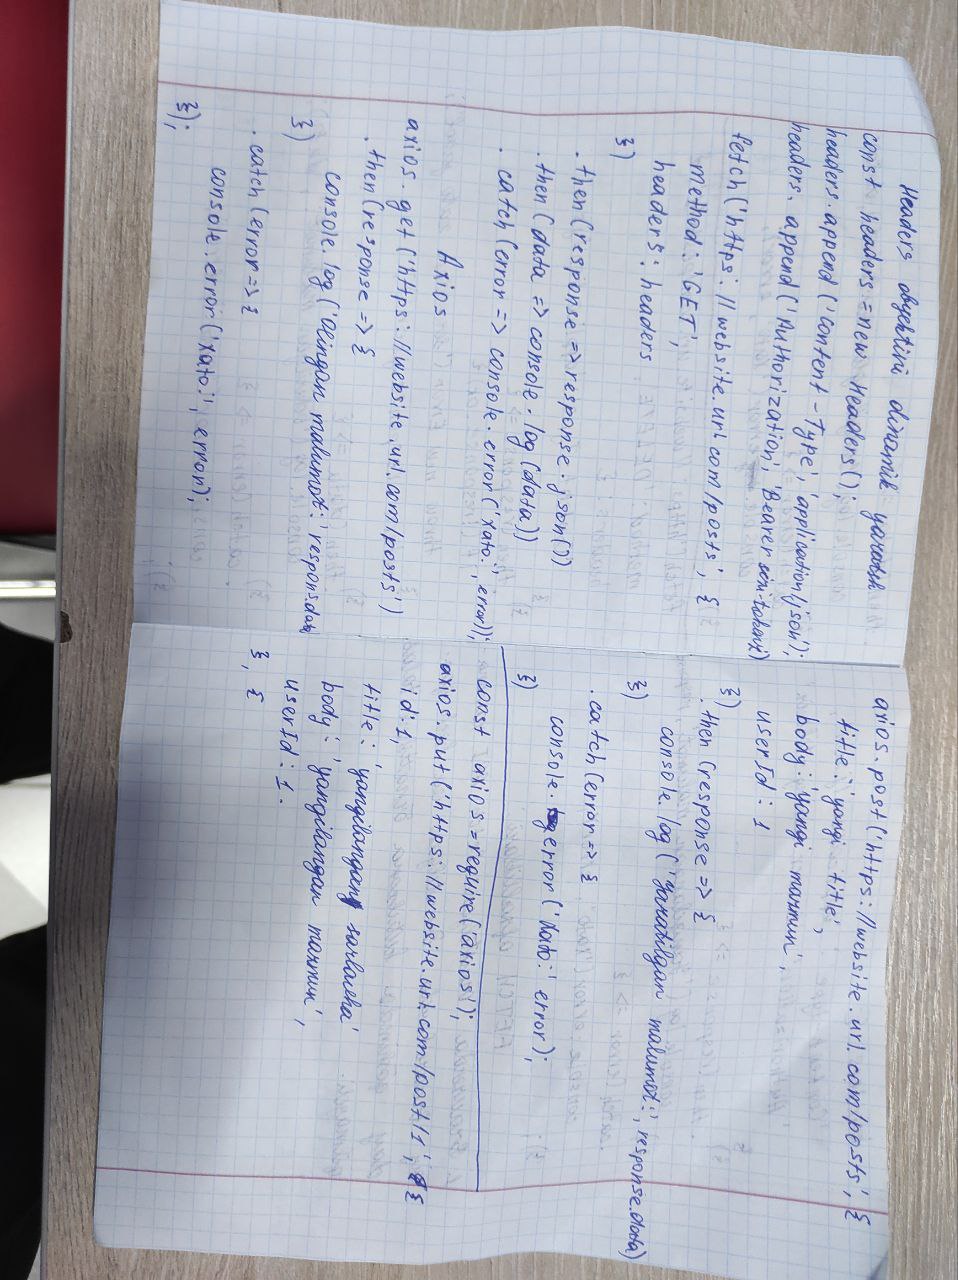 Headers obyektini dinamik yaratish
const headers = new Headers();
headers.append('Content-Type', 'application/json');
headers.append('Authorization', 'Bearer sizni-tokeni')
fetch('https://website.url.com/posts', {
method: 'GET',
headers: headers
})
.then(response => response.json())
.then(data => console.log(data))
.catch(error => console.error('Xato:', error));
Axios
axios.get('https://website.url.com/posts')
.then(response => {
console.log('Olingan malumot:' respons.data
})
.catch(error => {
console.error('Xato:', error);
});
axios.post('https://website.url.com/posts', {
title: 'yangi title',
body: 'yangi mazmun',
userId: 1
})
.then(response => {
console.log('Yaratilgan malumot:', response.data)
})
.catch(error => {
console.error('Xato:' error);
})
const axios = require('axios');
axios.put('https://website.url.com/post/1', {
id: 1,
title: 'yangilangan sarlavha'
body: 'yangilangan mazmun',
userId: 1.
}, {